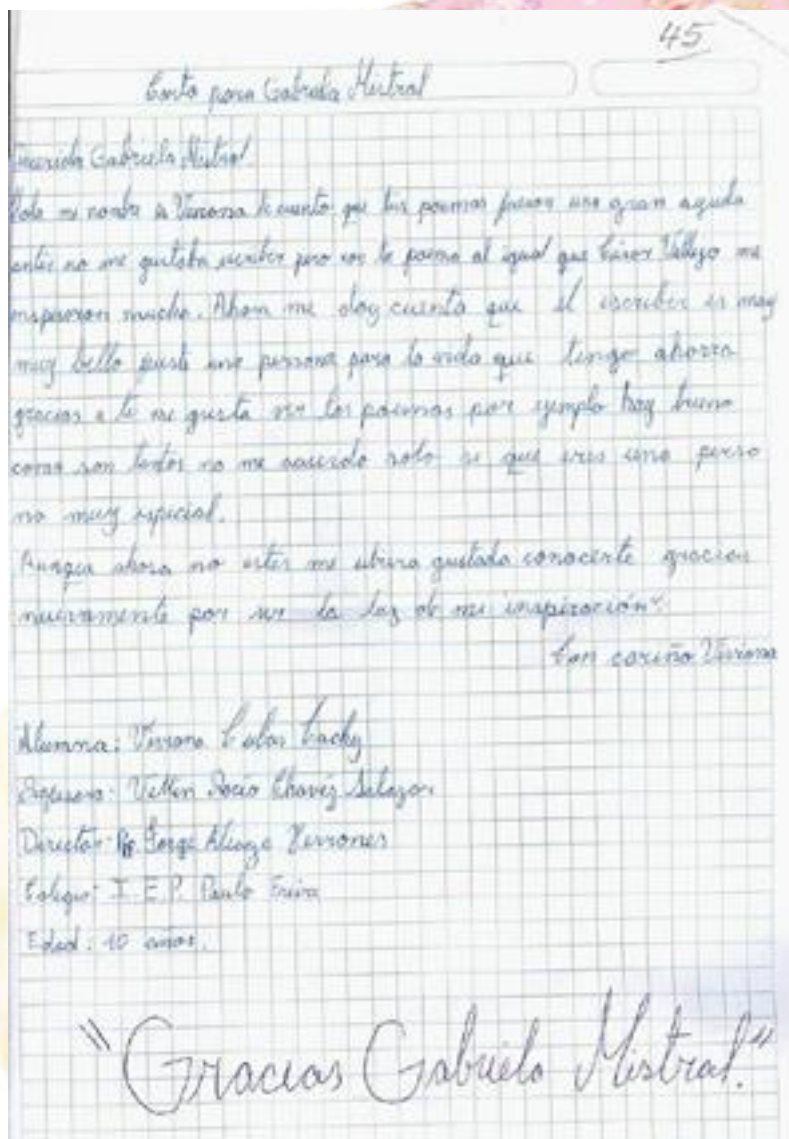 45
Carta para Gabriela Mistral
Querida Gabriela Mistral
Hola mi nombre es te cuento que tus poemas fueron una gran aguda
antes no me gustaba escribir pero con te poema al igual que César Vallejo me
inspiraron mucho. Ahora me doy cuenta que el escribir es muy
muy bello una persona para la vida que tengo ahora
gracias a ti me gusta ver los poemas por ejemplo hay bueno
como son tantos no me acuerdo solo se que eres una perso
na muy especial.
Aunque ahora no estes me ubiera gustado conocerte gracias
nuevamente por ser la luz de mi inspiración
Con cariño Viviana
Alumna: Viviana
Profesora: Rocio Chavéz Salazar
Director: Jorge Aliaga
Colegio: I.E.P. Paulo Freire
Edad: 10 años.
"Gracias Gabriela Mistral."